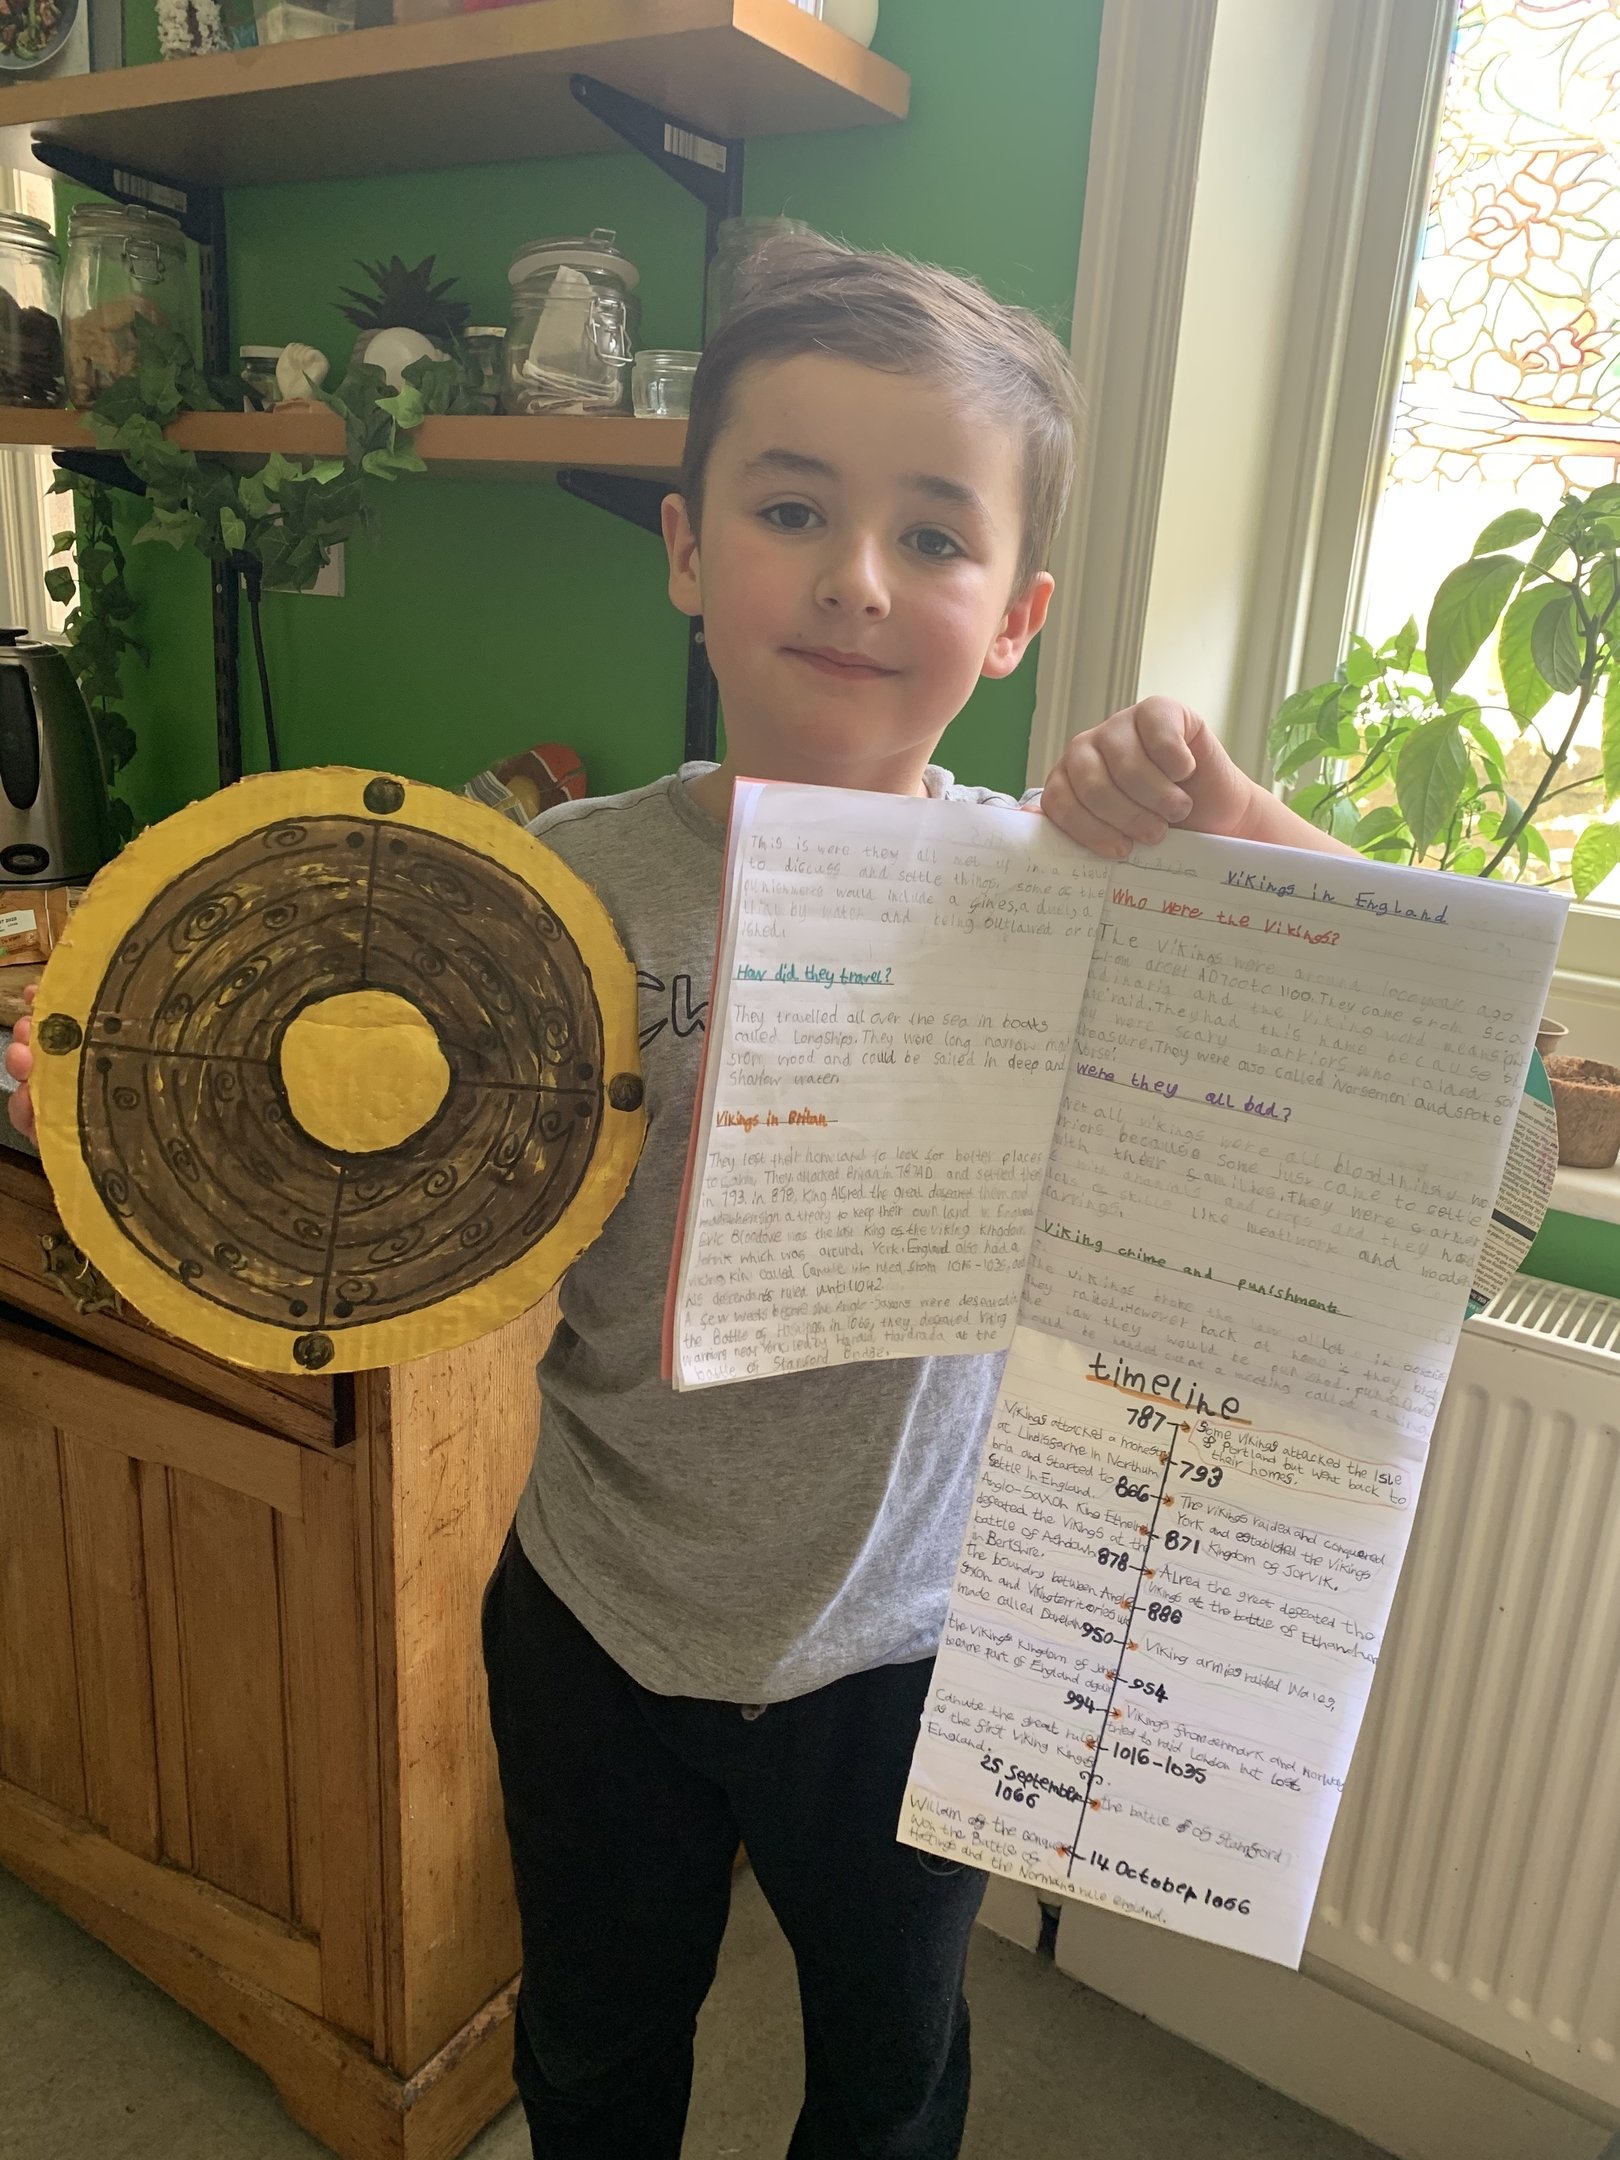 This is were they all met up in a field
to discuss and settle things. some of the
punishments would include a fines, a duel, a
trial by water and being outlawed or
ished.
How did they travel?
They travelled all over the sea in boats
called Longships. They were long narrow
from wood and could be sailed in deep and
shallow water.
Vikings in Britan
They left their homeland to look for better places
to farm. They attacked Britain in 787AD and settled
in 793. in 878, King Alfred the great defeated them and
sign a treaty to keep their own land in England
Eric Bloodaxe was the last King of the Viking kingdom
Jorvik which was around, York. England also had a
viking kin called Canute who ruled from 1016-1035, and
his defendants ruled until 1042.
A few weeks before the Anglo-Saxons were defeated in
the Battle of Hastings in 1066, they defeated Viking
warriors near York led by Harald Hardrada at the
battle of Stamford Bridge.
Vikings in England
Who were the Vikings?
The vikings were around 1000 years ago
from about AD700 to 1100. They came from sca
ndinaria and the viking word means
ate raid. They had this name because th
ey were scary warriors who raided for
treasure. They were also called Norsemen and spoke
Norse.
were they all bad?
Not all vikings were all bloodthirsty
riors because some just came to settle
with their families. They were farmer
s with animals and crops and they had
skills like meatlwork and wooden
carrings.
Viking crime and punishment
The vikings broke the law allot in
they raided. However back at home is they
the law they would be punished.
ould be handed out at a meeting called a thing
timeline
787
Some Vikings attacked the Isle
of Portland but went back to
their homes.
Vikings attacked a monestry
at Lindissarne in Northum
bria and started to
settle in England.
793
866
The vikings raided and conquered
York and established the Vikings
Kingdom of JorVIK.
Anglo-Saxon King Ethelre
defeated the Vikings at the
battle of Ashdown
in Berkshire.
871
878
Alred the great defeated the
Vikings at the battle of Ethandun
The boundry between Anglo
saxon and Viking territories
made called Danelaw
886
950
Viking armies raided Wales,
the Vikings Kingdom of
became part of England again
954
994
Vikings from denmark and Norway
tried to raid London but lost
Canute the great rule
as the first Viking King of
England.
1016-1035
25 September
1066
the battle of Stamford
William of the
won the Battle of
Hastings and the Normans rule england.
14 October 1066